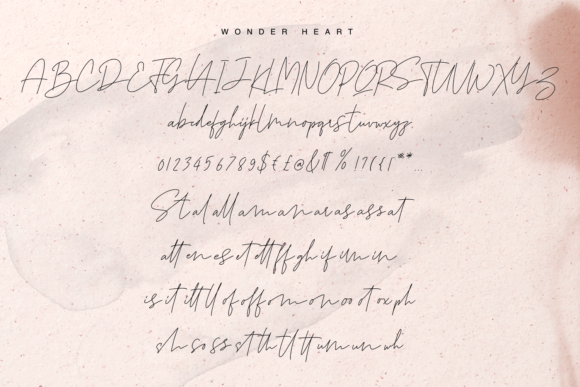 WONDER HEART
ABCDEFGHIJKLMNOPQRSTUVWXYZ
abcdefghijklmnopqrstuvwxyz.
0123456789$€£@&¶%!?({[**
St al all am an ar as assat
att en es et ett ff gh if im in
is it itt ll of off om on oo ot ox ph
sh so ss st th tl tt um un wh